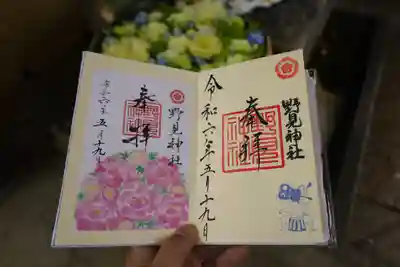 野見神社
奉拝
令和六年五月十九日
野見神社
奉拝
令和六年五月十九日